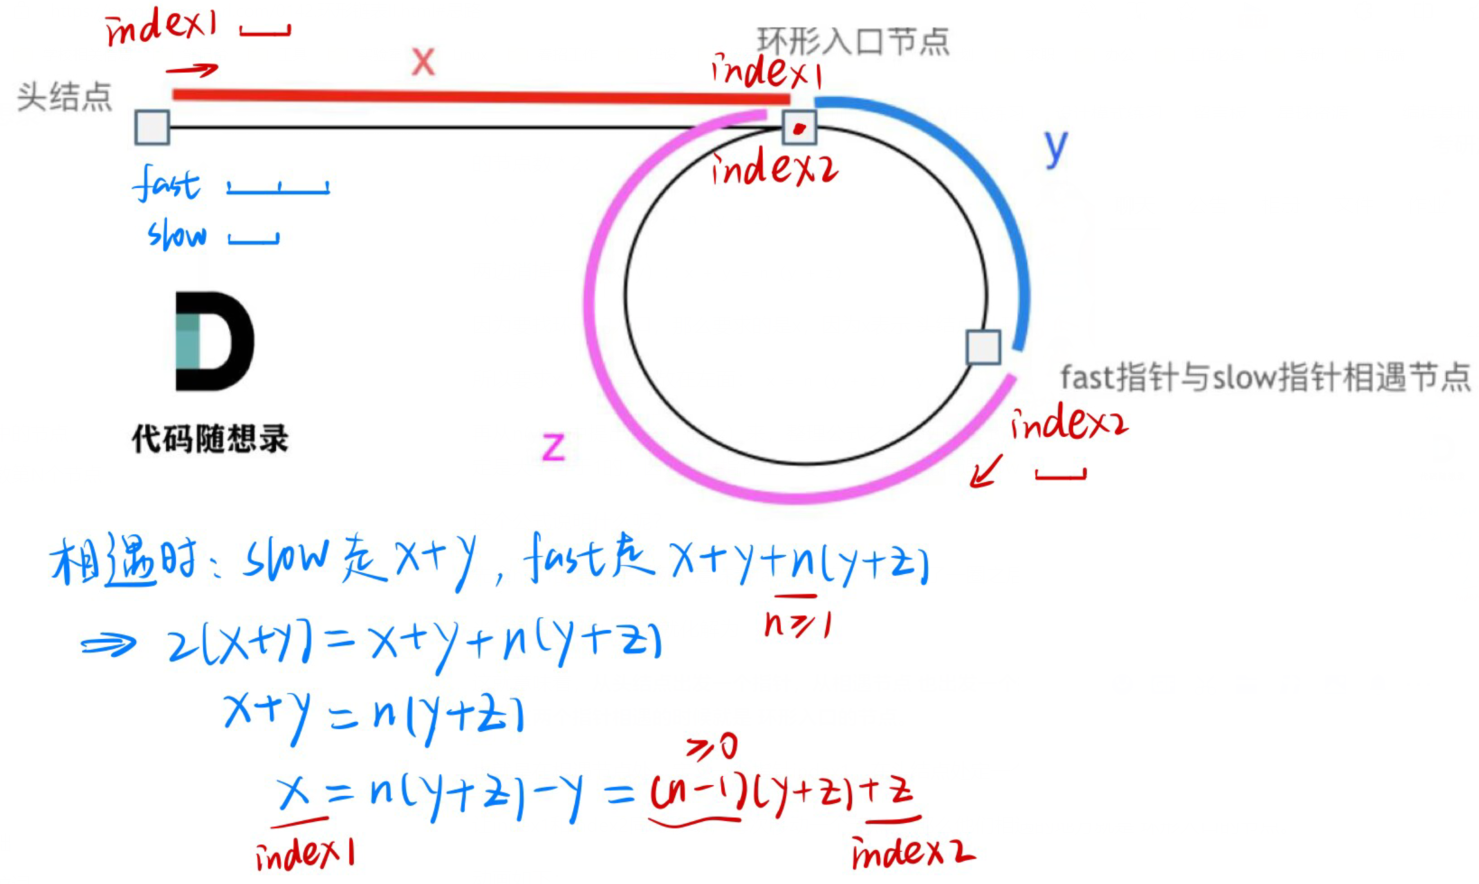 index1
x
环形入口节点
index1
头结点
y
index2
fast
slow
fast指针与slow指针相遇节点
index2
代码随想录
z
相遇时: slow走 x+y, fast走 x+y+n(y+z)
n≥1
⇒ 2(x+y)=x+y+n(y+z)
x+y=n(y+z)
≥0
x=n(y+z)-y=(n-1)(y+z)+z
index1
index2